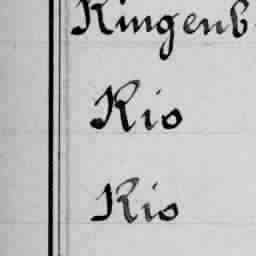 Ringenb
Rio
Rio